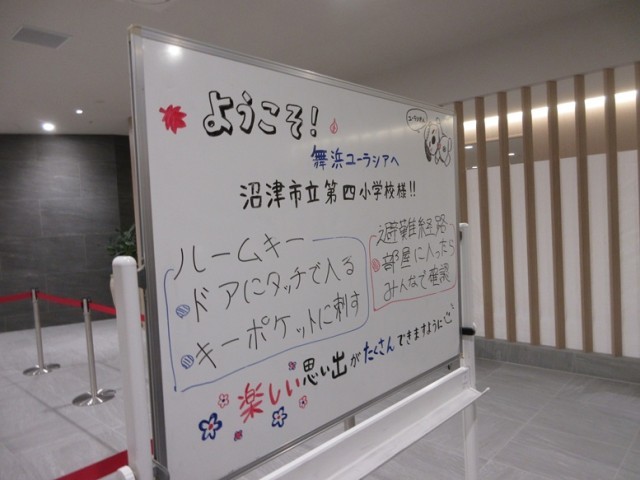 ようこそ!
舞浜ユーラシアへ
沼津市立第四小学校様!!
ルームキー
ドアにタッチで入る
キーポケットに刺す
避難経路
部屋に入ったら
みんなで確認
楽しい思い出がたくさんできますように